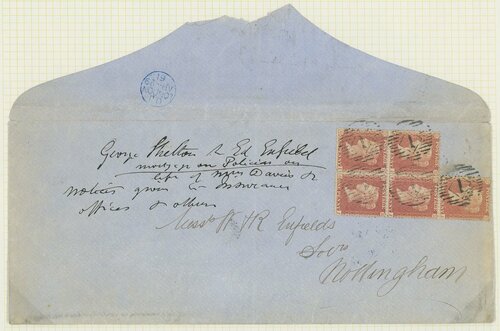 George Shelton to Ed Enfield
mortgage on Policies on
life of Miss Davies &
notices given to Insurance
offices & others
Messrs W & H R Enfields
Solrs
Nottingham